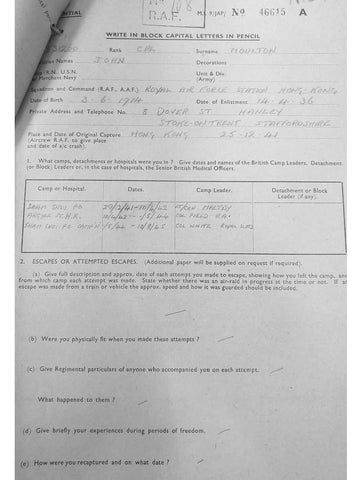 R.A.F. M.I. 9/JAP/ No 46615 A
WRITE IN BLOCK CAPITAL LETTERS IN PENCIL
Rank CPL Surname MOULTON
Names JOHN Decorations
R.N., U.S.N. Unit & Div:
Merchant Navy (Army)
Squadron and Command (R.A.F., A.A.F.) ROYAL AIR FORCE STATION HONG-KONG
Date of Birth 3-6-1914 Date of Enlistment 14-4-36
Private Address and Telephone No. 8 DOVER ST. HANLEY
STOKE-ON-TRENT STAFFORDSHIRE
Place and Date of Original Capture HONG KONG 25-12-41
(Aircrew R.A.F. to give place
and date of a/c crash).
1. What camps, detachments or hospitals were you in? Give dates and names of the British Camp Leaders, Detachment
(or Block) Leaders or, in the case of hospitals, the Senior British Medical Officers.
Camp or Hospital. Dates. Camp Leader. Detachment or Block
Leader (if any).
SHAM SHUI PO MALTBY
ARGYLE COL FIELD R.A.
SHAM SHUI PO COL WHITE ROYAL
2. ESCAPES OR ATTEMPTED ESCAPES. (Additional paper will be supplied on request if required).
(a) Give full description and approx. date of each attempt you made to escape, showing how you left the camp, and
from which camp each attempt was made. State whether there was an air-raid in progress at the time or not. If at
escape was made from a train or vehicle the approx. speed and how it was guarded should be included.
(b) Were you physically fit when you made these attempts?
(c) Give Regimental particulars of anyone who accompanied you on each attempt.
What happened to them?
(d) Give briefly your experiences during periods of freedom.
(e) How were you recaptured and on what date?